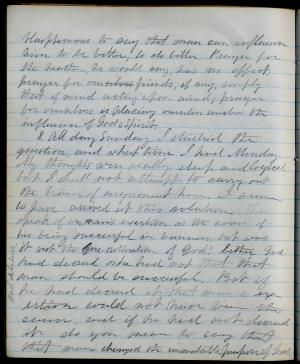 to say that man can influence
him to be better, to do better. Prayer for
the he would say, has no effect,
prayer for ourselves friends, if any, simply
that of mind acting upon mind; prayer
for ourselves is placing ourselves under the
influence of God's Spirit.
All day Sunday I studied the
question, and what time I had Monday
My thoughts were really deep and logical
but I shall not attempt to carry out
the train of argument here. I seem
to have arrived at this solution. We
speak of a man's exertion as the cause of
his being successful in business, but was
it not the of God? Either God
had decreed or he had not that that
man should be successful. But if
he had decreed it, that man's ex-
ertion could not have been the
cause and if he had not decreed
it do you mean to say that
that man changed the immutable purposes of God